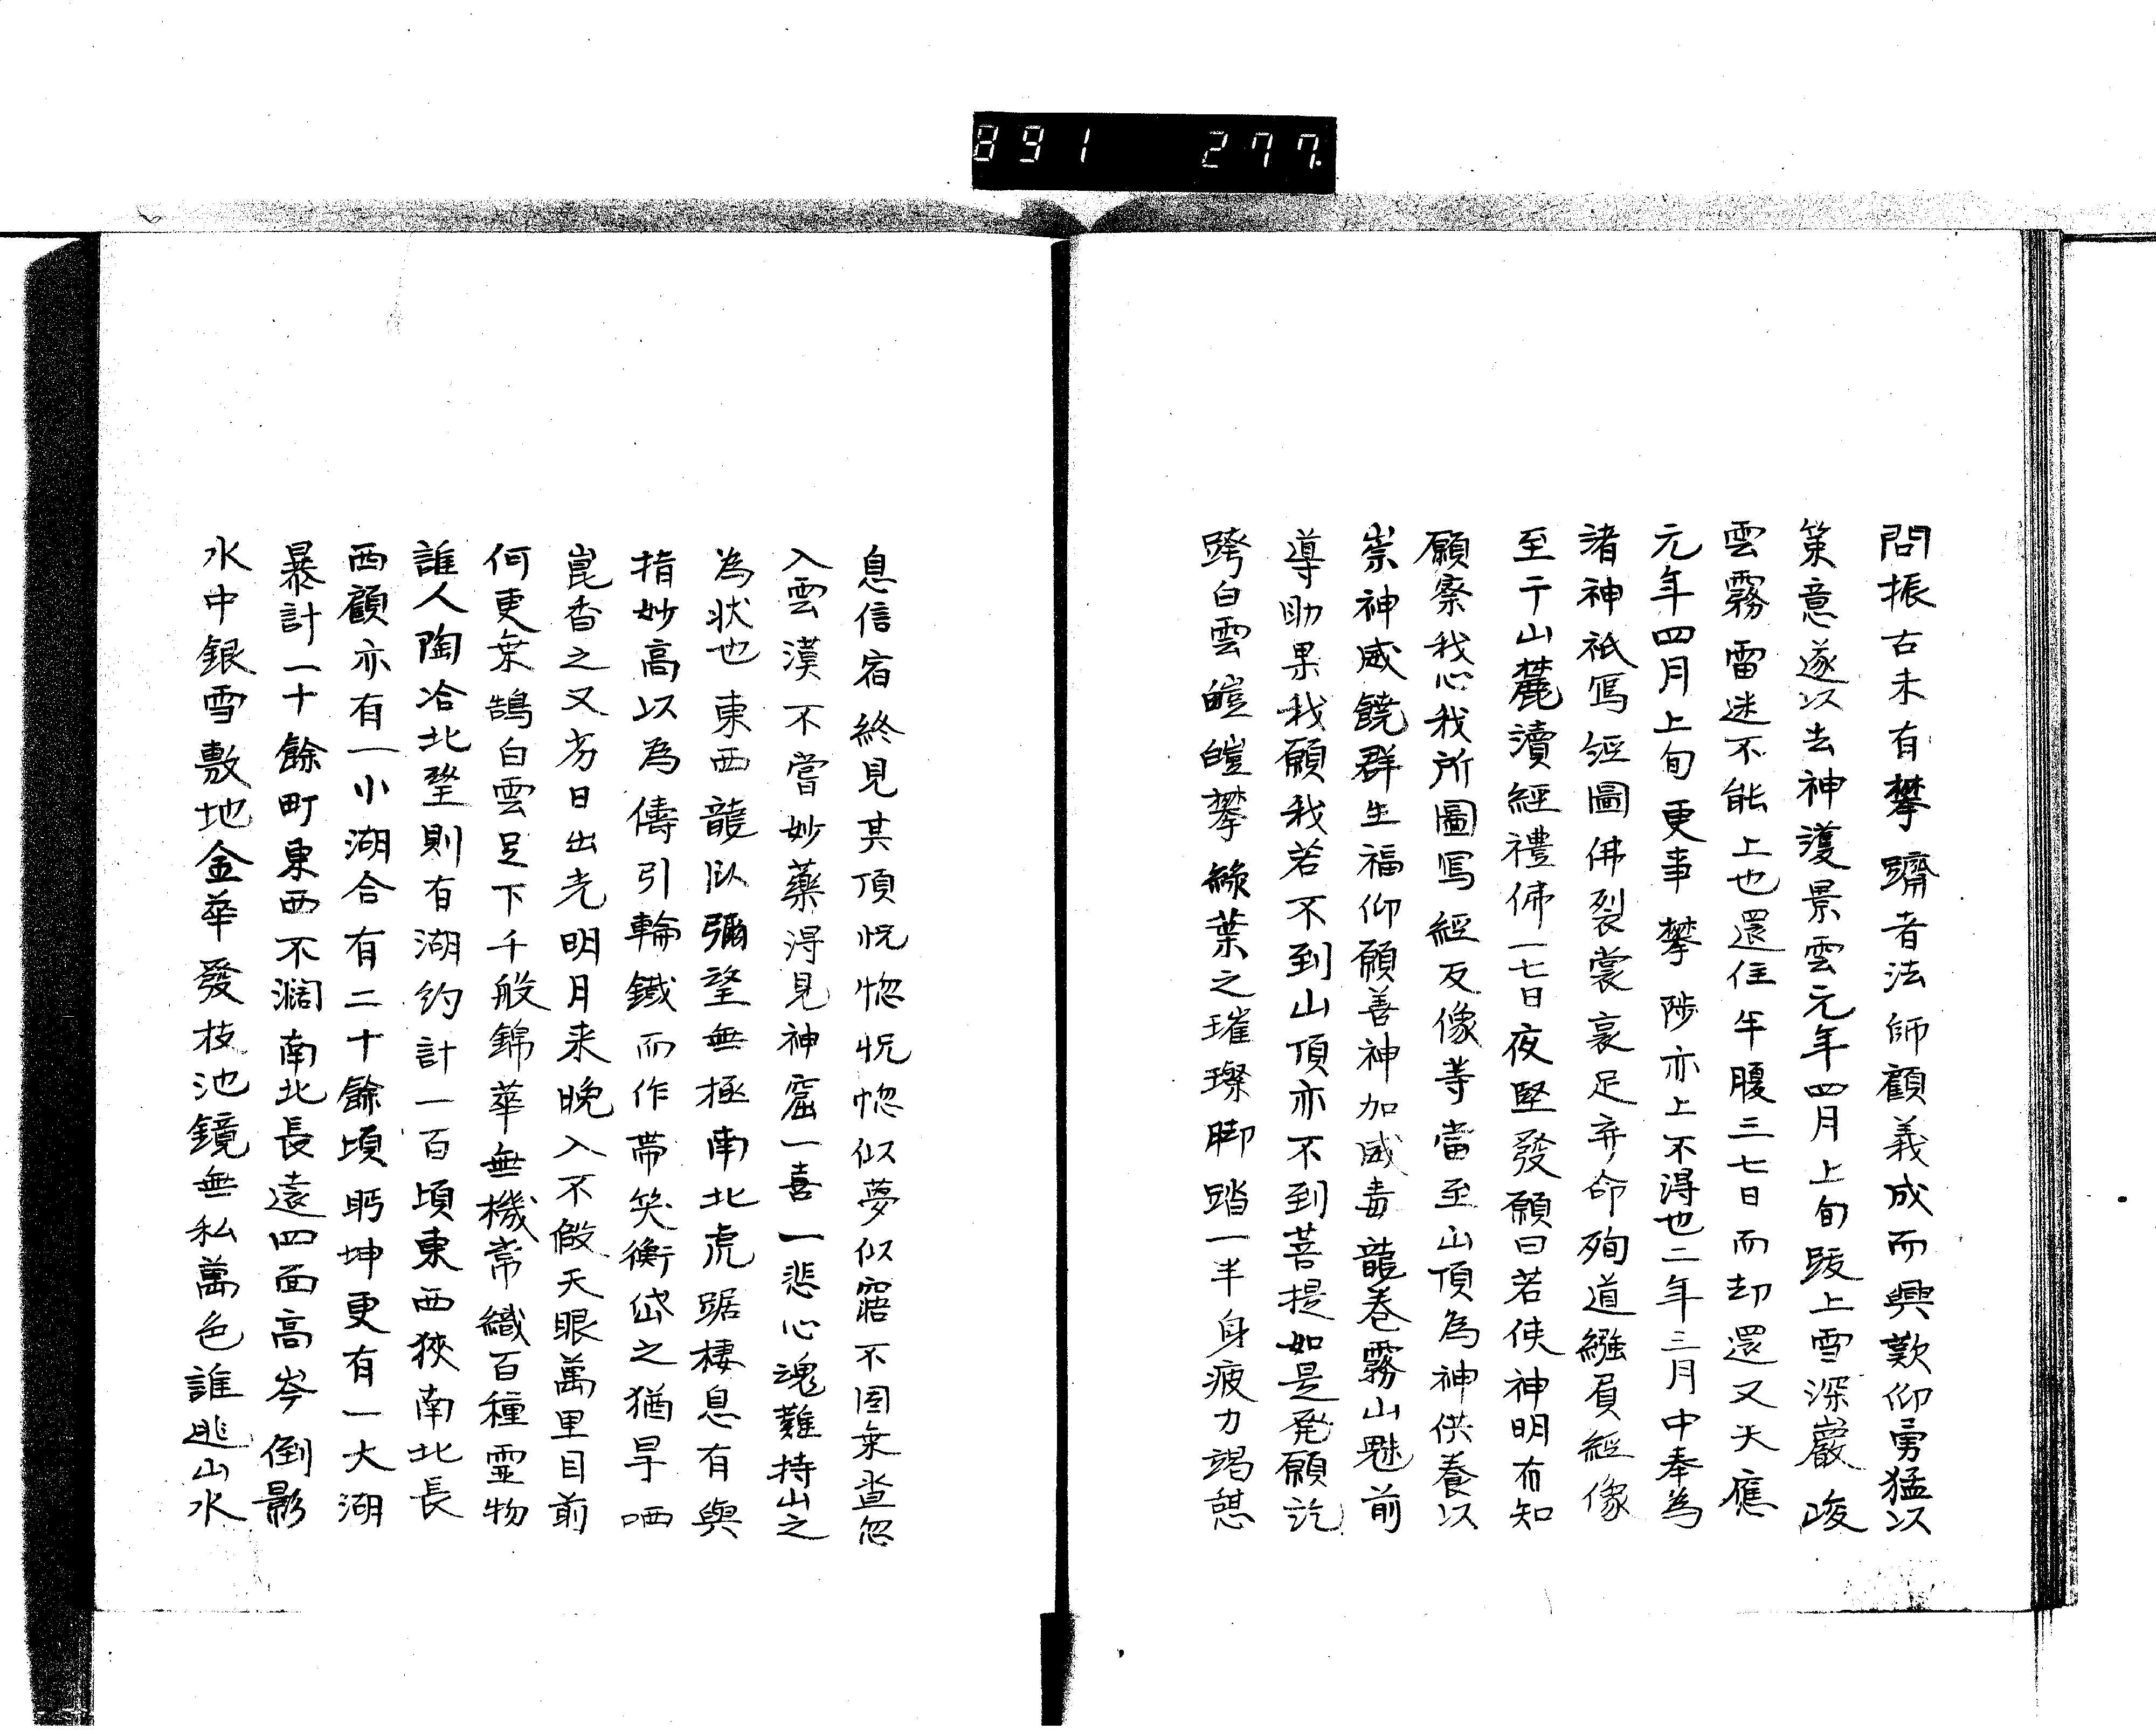 891 277
問振古未有攀躋者法師顧義成而興歎仰勇猛以
策意遂以去神護景雲元年四月上旬跋上雪深巖峻
雲霧雷迷不能上也還住半腹三七日而却還又天應
元年四月上旬更事攀陟亦上不得也二年三月中奉為
渚神祇寫經圖佛裂裳裹足弃命殉道繦負經像
至于山麓瀆經禮佛一七日夜堅發願曰若使神明有知
願察我心我所圖寫經及像等當至山頂為神供養以
崇神威饒群生福仰願善神加威毒龍巻霧山魅前
導助果我願我若不到山頂亦不到菩提如是発願訖
跨白雲皚皚攀綠葉之璀璨脚踏一半身疲力竭憩
息信宿終見其頂怳惚怳惚似夢似寤不因乗査忽
入雲漢不嘗妙藥得見神窟一喜一悲心魂難持山之
為状也東西龍臥彌望無極南北虎踞棲息有興
指妙高以為儔引輪鐵而作帯笑衡岱之猶卑哂
崑香之又劣日出先明月来晩入不假天眼萬里目前
何更乗鵠白雲足下千般錦華無機常織百種霊物
誰人陶冶北望則有湖約計一百頃東西狹南北長
西顧亦有一小湖合有二十餘頃眄坤更有一大湖
暴計一十餘町東西不濶南北長遠四面高岑倒影
水中銀雪敷地金華發枝池鏡無私萬色誰逃山水